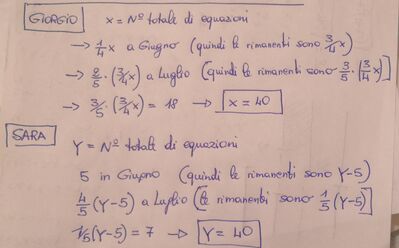 GIORGIO x = Nº totale di equazioni
→ 1/4 x a Giugno (quindi le rimanenti sono 3/4 x)
→ 2/5 · (3/4 x) a Luglio (quindi le rimanenti sono 3/5 · (3/4 x)]
→ 3/5 · (3/4 x) = 18 → x = 40
SARA
Y = Nº totale di equazioni
5 in Giugno (quindi le rimanenti sono Y-5)
4/5 (Y-5) a Luglio [le rimanenti sono 1/5 (Y-5)]
1/5 (Y-5) = 7 → Y = 40